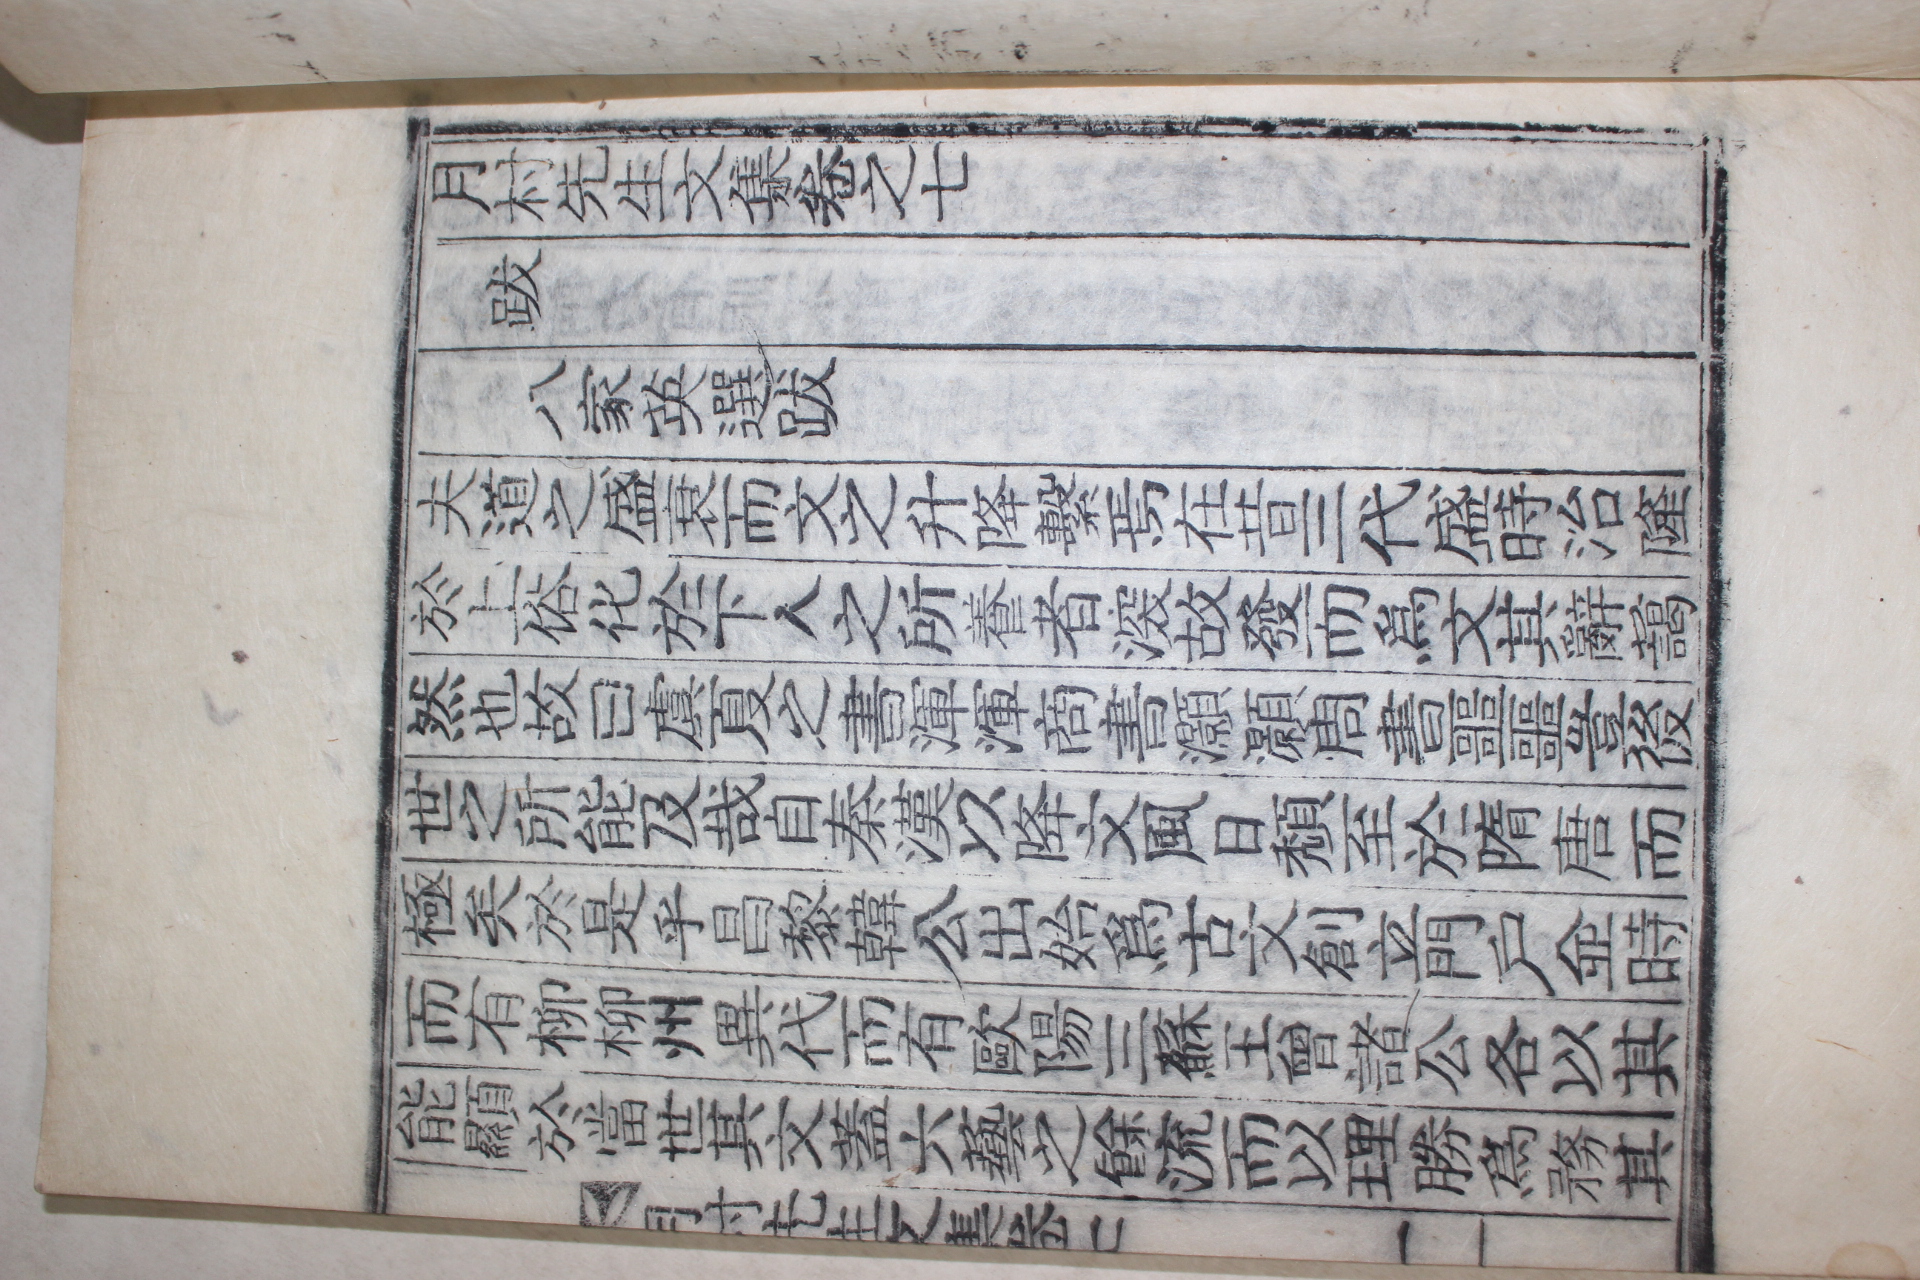 月村先生文集卷之七
跋
八家英選跋
夫道之盛衰而文之升降繫焉在昔三代盛時治隆
於上俗化於下人之所養者深故發而爲文其辭藹
然也故曰虞夏之書渾渾商書灝灝周書噩噩豈後
世之所能及哉自秦漢以降文風日頹至於隋唐而
極矣於是乎昌黎韓公出始爲古文創立門戶金時
而有柳柳州異代而有歐陽三蘇王曾諸公各以其
能顯於當世其文蓋六藝之餘流而以理勝爲務其
月村先生文集卷七 一